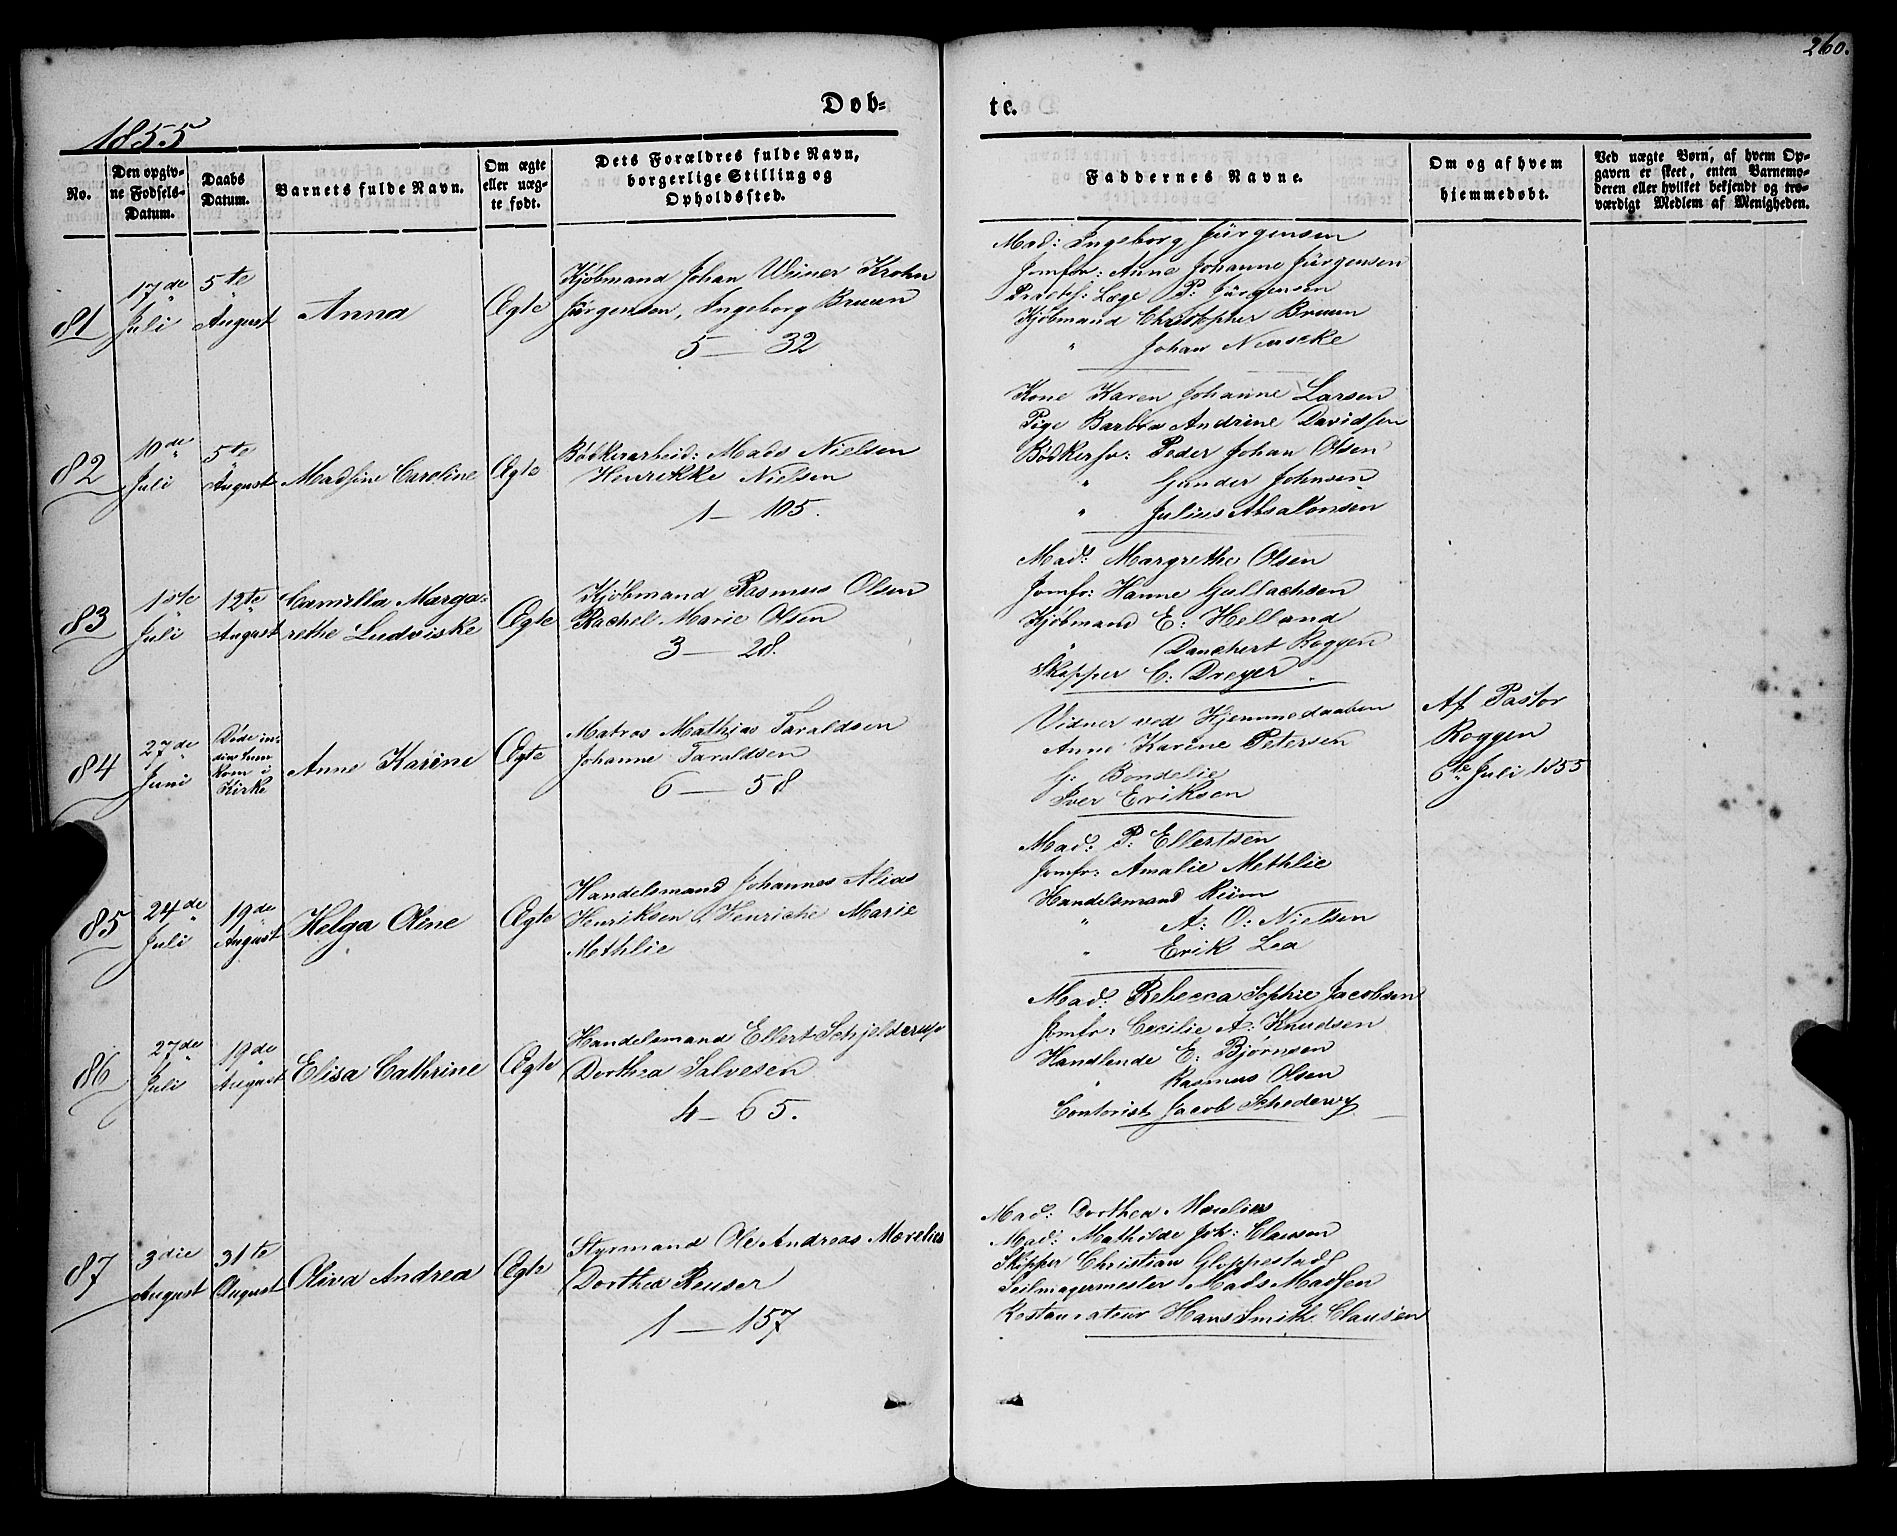 260.
Døb-
te.
1855
No.
Den opgiv-
ne Fødsels-
Datum.
Daabs
Datum.
Barnets fulde Navn.
Om ægte
eller uæg-
te født.
Dets Forældres fulde Navn,
borgerlige Stilling og
Opholdssted.
Faddernes Navne.
Om og af hvem
hjemmedøbt.
Ved uægte Børn, af hvem Op-
gaven er skeet, enten Barnemo-
deren eller hvilket bekjendt og tro-
værdigt Medlem af Menigheden.
81
17de
Juli
5te
August
Anna
Ægte
Kjøbmand Johan Wiiner Krohn
Jürgensen, Ingeborg Bruun
5 — 32
Mad: Ingeborg Jürgensen
Jomfr: Anne Johanne Jürgensen
Practis: Læge P: Jürgensen
Kjøbmand Christopher Bruun
" Johan
82
10de
Juli
5te
August
Madsine Caroline
Ægte
Bødkerarbeid: Mads Nielsen
Henrikke Nielsen
1 — 105.
Kone Karen Johanne Larsen
Pige Barbra Andrine Davidsen
Bødkersv: Peder Johan Olsen
" Gunder Johnsen
" Julius Absalonsen
83
1ste
Juli
12te
August
Camilla Marga-
rethe Ludviske
Ægte
Kjøbmand Rasmus Olsen
Rachel Marie Olsen
3 — 28.
Mad: Margrethe Olsen
Jomfr: Hanne Gullachsen
Kjøbmand E: Helland
" Danchert Roggen
Skipper C: Dreyer
84
27de
Juni
Døde in-
den hun
kom i
Kirke
Anne Karine
Ægte
Matros Mathias Taraldsen
Johanne Taraldsen
6 — 58
Vidner ved Hjemmedaaben
Anne Karine Petersen
G: Bondelie
Iver Eriksen
Af Pastor
Roggen
6te Juli 1855
85
24de
Juli
19de
August
Helga Oline
Ægte
Handelsmand Johannes Alias
Henriksen, Henriche Marie
Methlie
Mad: P: Ellertsen
Jomfr: Amalie Methlie
Handelsmand Riim
" A: O: Nielsen
" Erik Lea
86
27de
Juli
19de
August
Elisa Cathrine
Ægte
Handelsmand Ellert Schjelderup
Dorthea Salvesen
4 — 65.
Mad: Rebecca Sophie Jacobsen
Jomfr: Cecilie A: Knudsen
Handlende E: Bjørnsen
" Rasmus Olsen
Contorist Jacob
87
3die
August
31te
August
Oliva Andrea
Ægte
Styrmand Ole Andreas Mærelius
Dorthea Reuser
1 — 157
Mad: Dorthea Mærelius
Mad: Mathilde Joh: Clausen
Skipper Christian Gloppestad
Seilmagermester Mads Madsen
Restaurateur Hans Smith Clausen